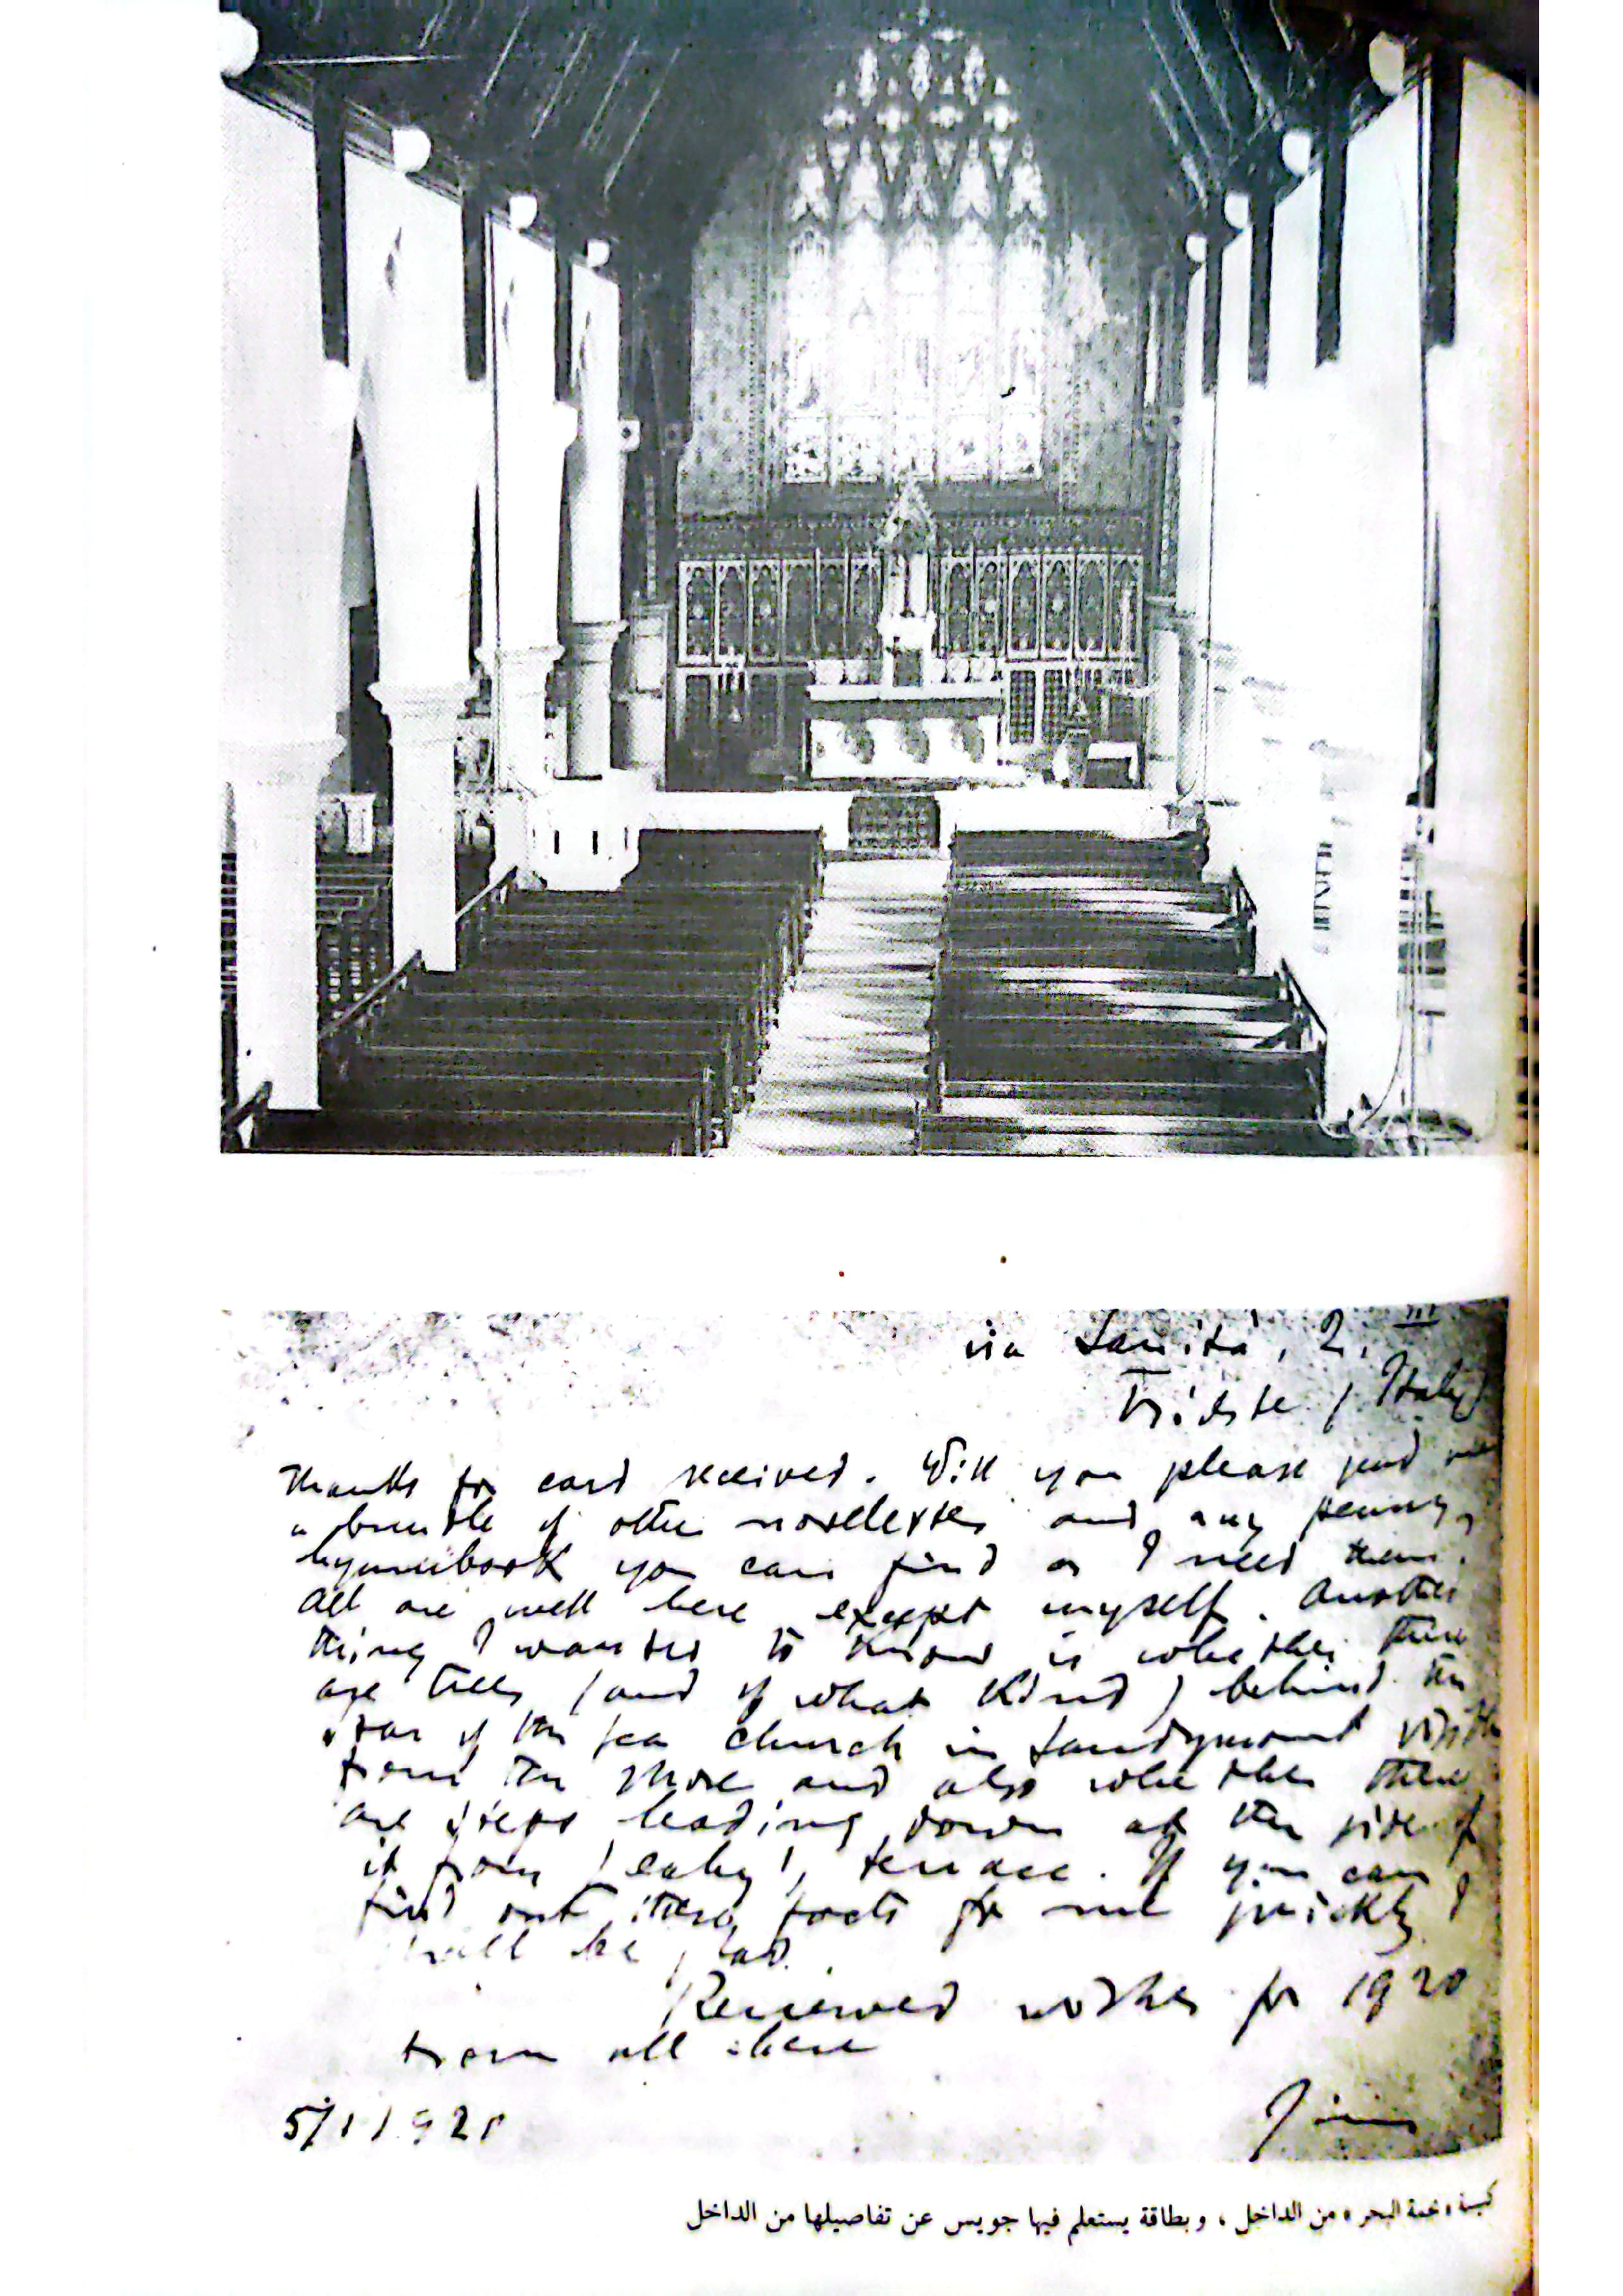 via Sanità, 2. III
Trieste (Italy)
Thanks for card received. Will you please send me
a bundle of other novelettes and any penny
hymnbook you can find as I need them.
All are well here except myself. Another
thing I wanted to know is whether there
are trees (and of what kind) behind the
Star of the Sea church in Sandymount visible
from the shore and also whether there
are steps leading down at the side of
it from Leahy's terrace. If you can
find out these facts for me quickly I
will be glad.
Renewed wishes for 1920
from all here
5/1/1920
Jim
كنيسة «نجمة البحر» من الداخل ، وبطاقة يستعلم فيها جويس عن تفاصيلها من الداخل